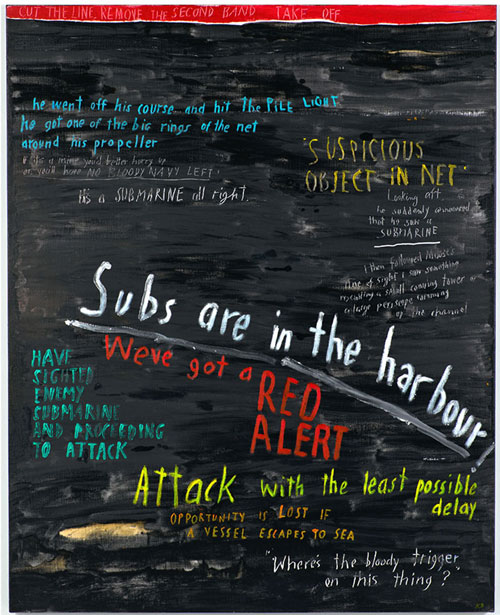 CUT THE LINE. REMOVE THE SECOND BAND TAKE OFF
he went off his course and hit the PILE LIGHT
he got one of the big rings of the net
around his propeller
If it's a mine you'd better hurry up
or you'll have NO BLOODY NAVY LEFT!
It's a SUBMARINE all right.
'SUSPICIOUS
OBJECT IN NET'
Looking aft
he suddenly announced
that he saw a
SUBMARINE
I then followed
line of sight I saw something
resembling a small conning tower or
a large periscope
up the channel
Subs are in the harbour!
We've got a
RED
ALERT
HAVE
SIGHTED
ENEMY
SUBMARINE
AND PROCEEDING
TO ATTACK
Attack with the least possible
delay
OPPORTUNITY IS LOST IF
A VESSEL ESCAPES TO SEA
"Where's the bloody trigger
on this thing?"